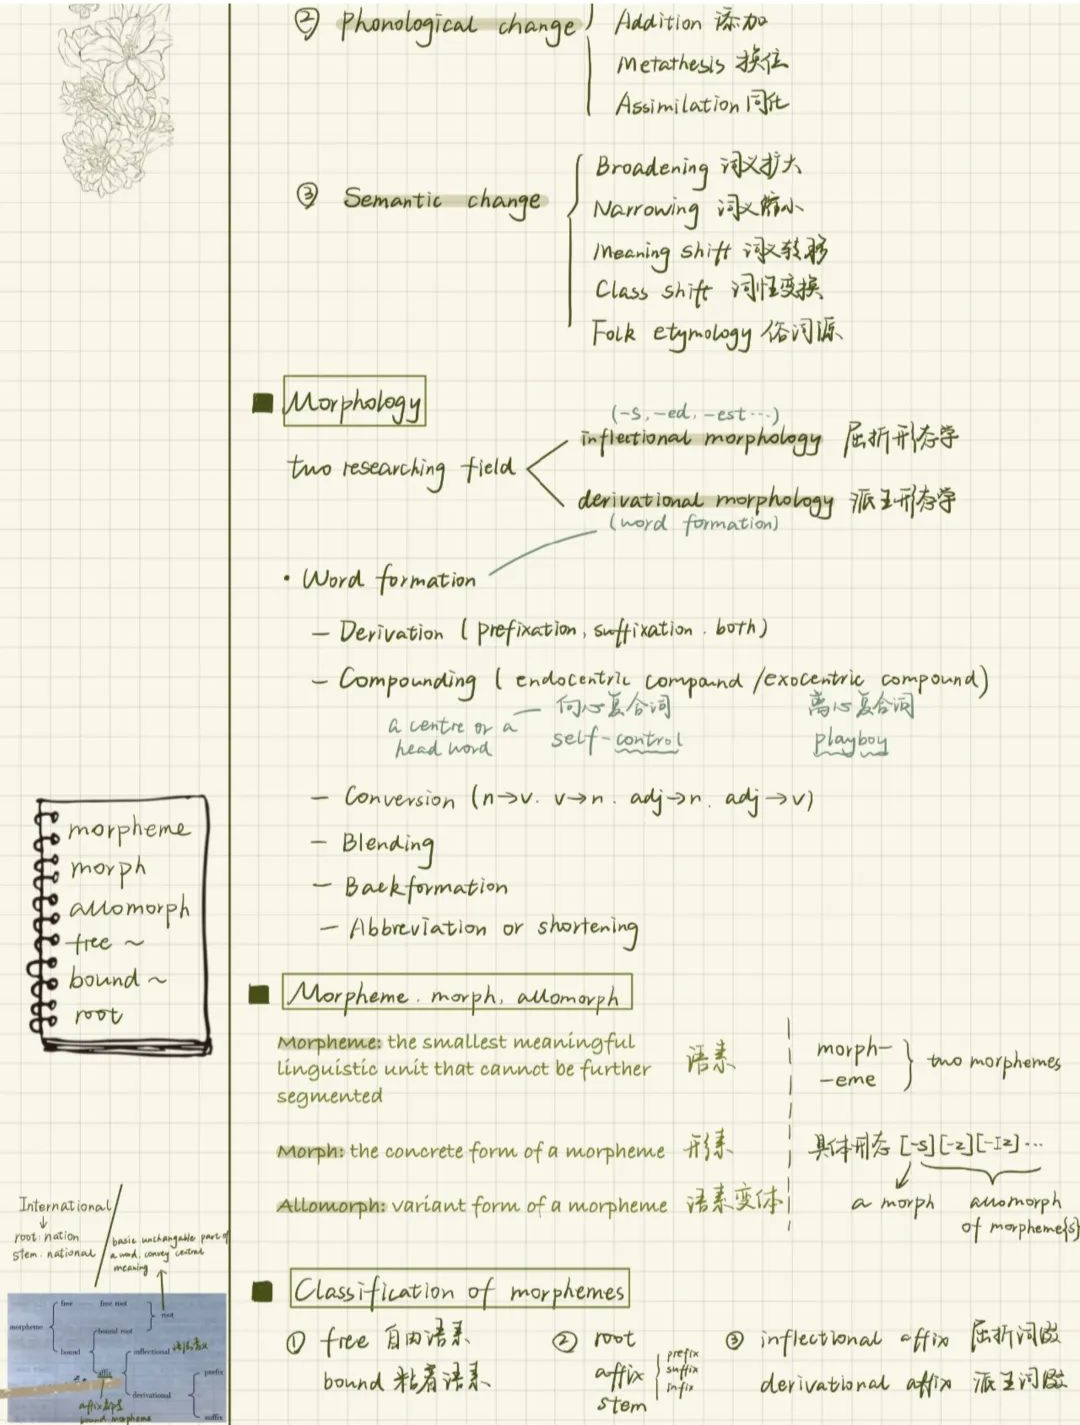 ② Phonological change
Addition 添加
Metathesis 换位
Assimilation 同化
③ Semantic change
Broadening 词义扩大
Narrowing 词义缩小
Meaning shift 词义转移
Class shift 词性变换
Folk etymology 俗词源
Morphology
two researching field
(-s, -ed, -est …)
inflectional morphology 屈折形态学
derivational morphology 派生形态学
(word formation)
• Word formation
– Derivation (prefixation, suffixation. both)
– Compounding (endocentric compound /exocentric compound)
a centre or a head word
向心复合词
self-control
离心复合词
playboy
– Conversion (n→v. v→n. adj→n. adj→v)
– Blending
– Backformation
– Abbreviation or shortening
morpheme
morph
allomorph
free ~
bound ~
root
Morpheme. morph, allomorph
Morpheme: the smallest meaningful
linguistic unit that cannot be further
segmented
语素
morph-
-eme
two morphemes
Morph: the concrete form of a morpheme 形素
具体形态 [-s][-z][-Iz]…
Allomorph: variant form of a morpheme 语素变体
a morph
allomorph
of morpheme{s}
International
↓
root: nation
stem. national
basic unchangable part of
a word, convey central
meaning
morpheme
free
free root
root
bound
bound root
affix
inflectional
derivational
prefix
suffix
bound morpheme
Classification of morphemes
① free 自由语素
bound 粘着语素
② root
affix
prefix
suffix
infix
stem
③ inflectional affix 屈折词缀
derivational affix 派生词缀